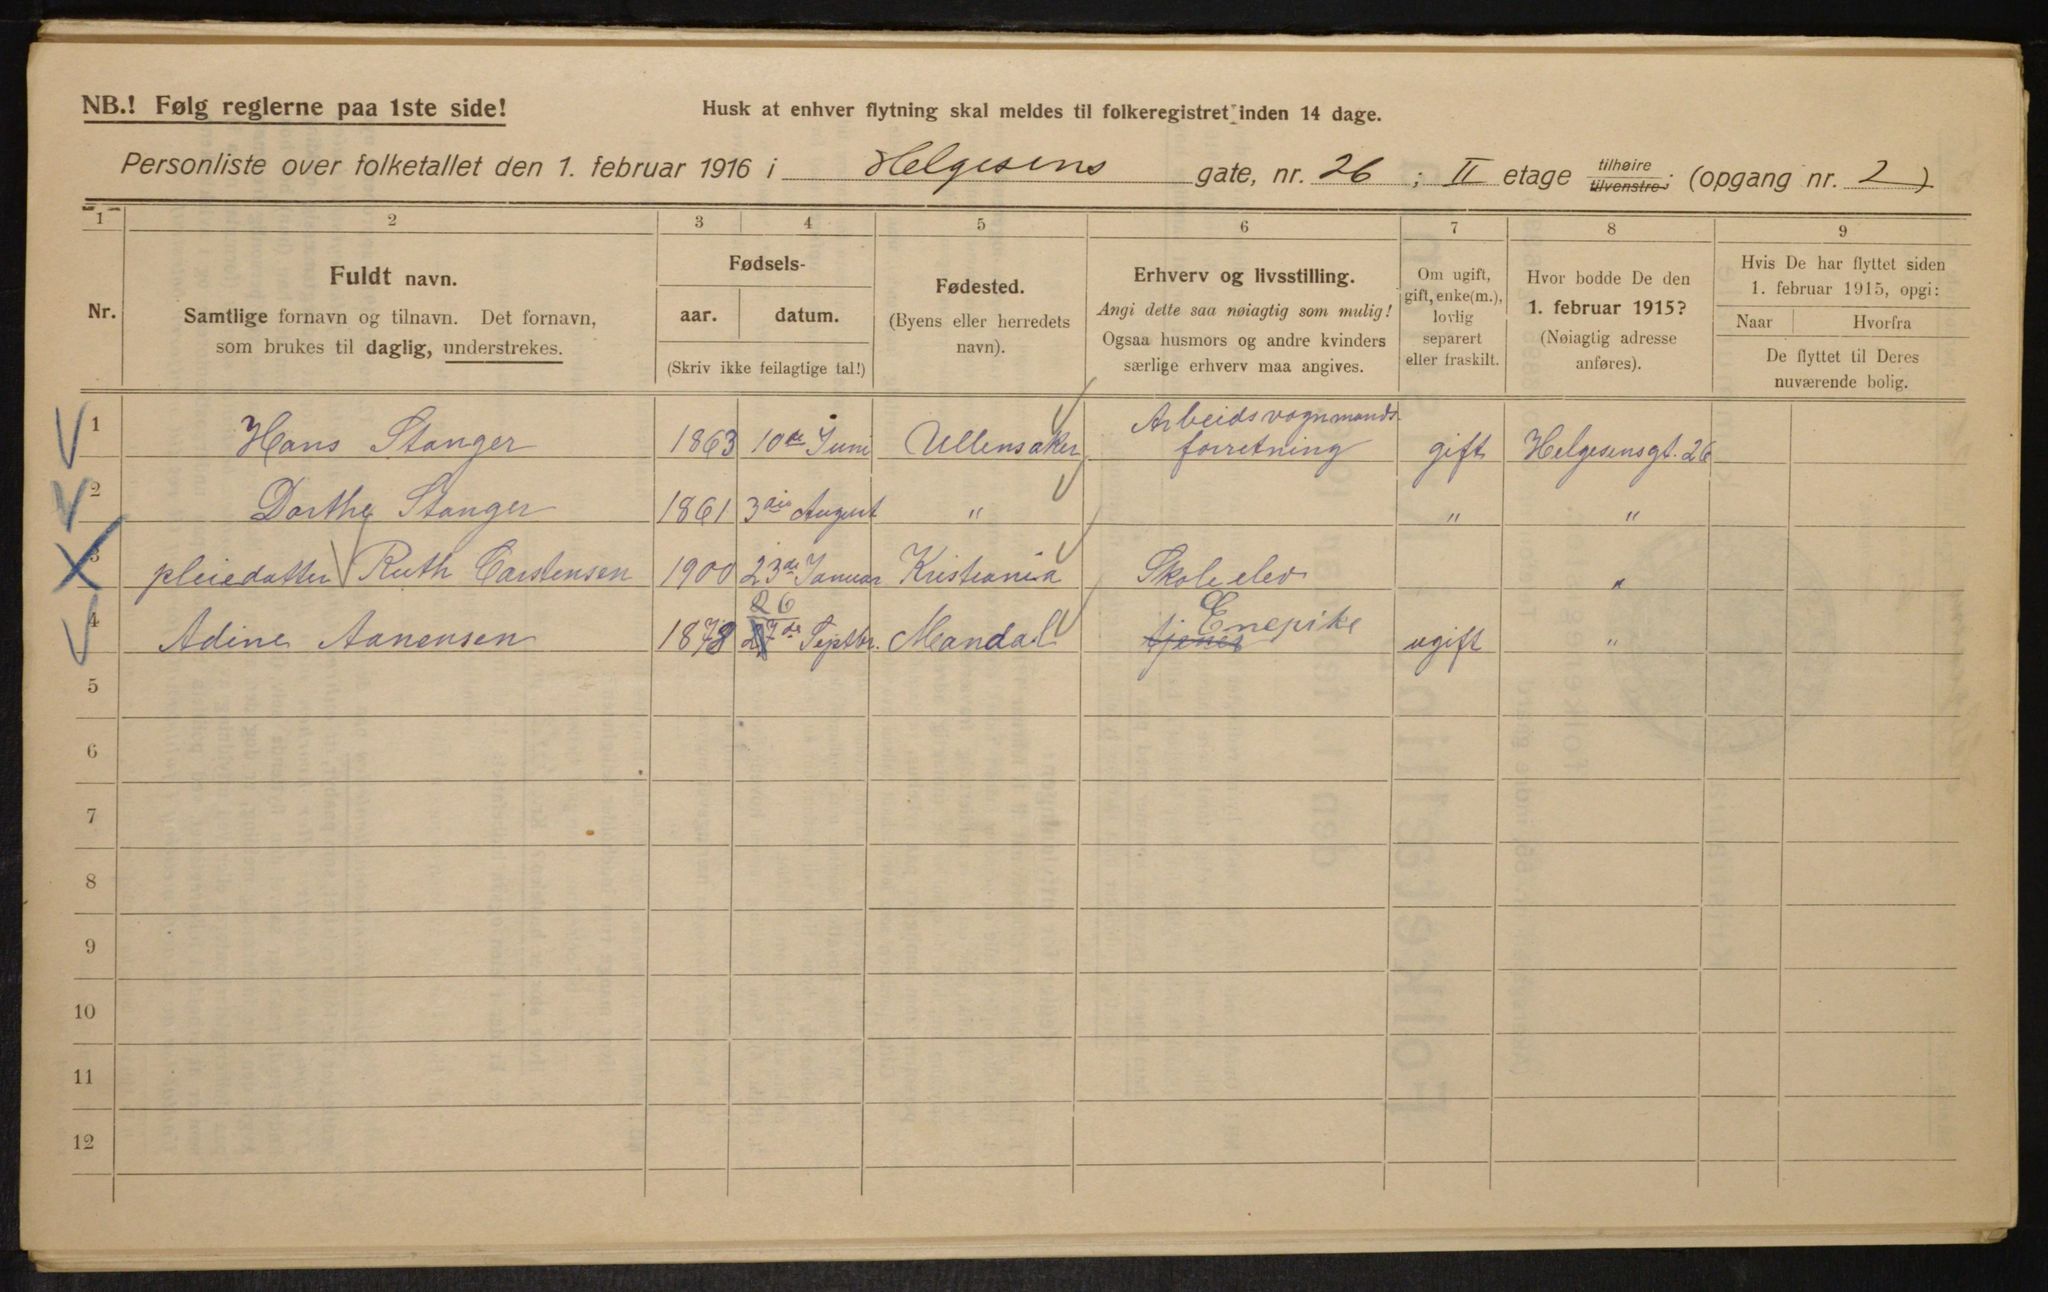 NB.! Følg reglerne paa 1ste side!
Husk at enhver flytning skal meldes til folkeregistret inden 14 dage.
Personliste over folketallet den 1. februar 1916 i Helgesens gate, nr. 26 ; II etage tilhøire tilvenstre; (opgang nr. 2)
1 2 3 4 5 6 7 8 9
Nr.
Fuldt navn.
Samtlige fornavn og tilnavn. Det fornavn,
som brukes til daglig, understrekes.
Fødsels-
aar. datum.
(Skriv ikke feilagtige tal!)
Fødested.
(Byens eller herredets
navn).
Erhverv og livsstilling.
Angi dette saa nøiagtig som mulig!
Ogsaa husmors og andre kvinders
særlige erhverv maa angives.
Om ugift,
gift, enke(m.),
lovlig
separert
eller fraskilt.
Hvor bodde De den
1. februar 1915?
(Nøiagtig adresse
anføres).
Hvis De har flyttet siden
1. februar 1915, opgi:
Naar Hvorfra
De flyttet til Deres
nuværende bolig.
1 Hans Stanger 1863 10de Juni Ullensaker Arbeidsvognmands-
forretning gift Helgesensgt. 26
2 Dorthe Stanger 1861 3die August " " "
3 pleiedatter Ruth Carstensen 1900 23de Januar Kristiania Skoleelev "
4 Adine Aanensen 1878 26 27de Septbr. Mandal tjener Enepike ugift "
5
6
7
8
9
10
11
12